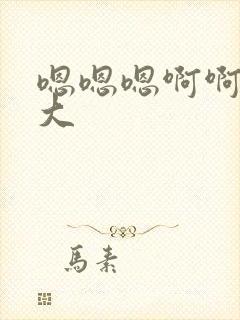 嗯嗯嗯啊啊
大
馬素